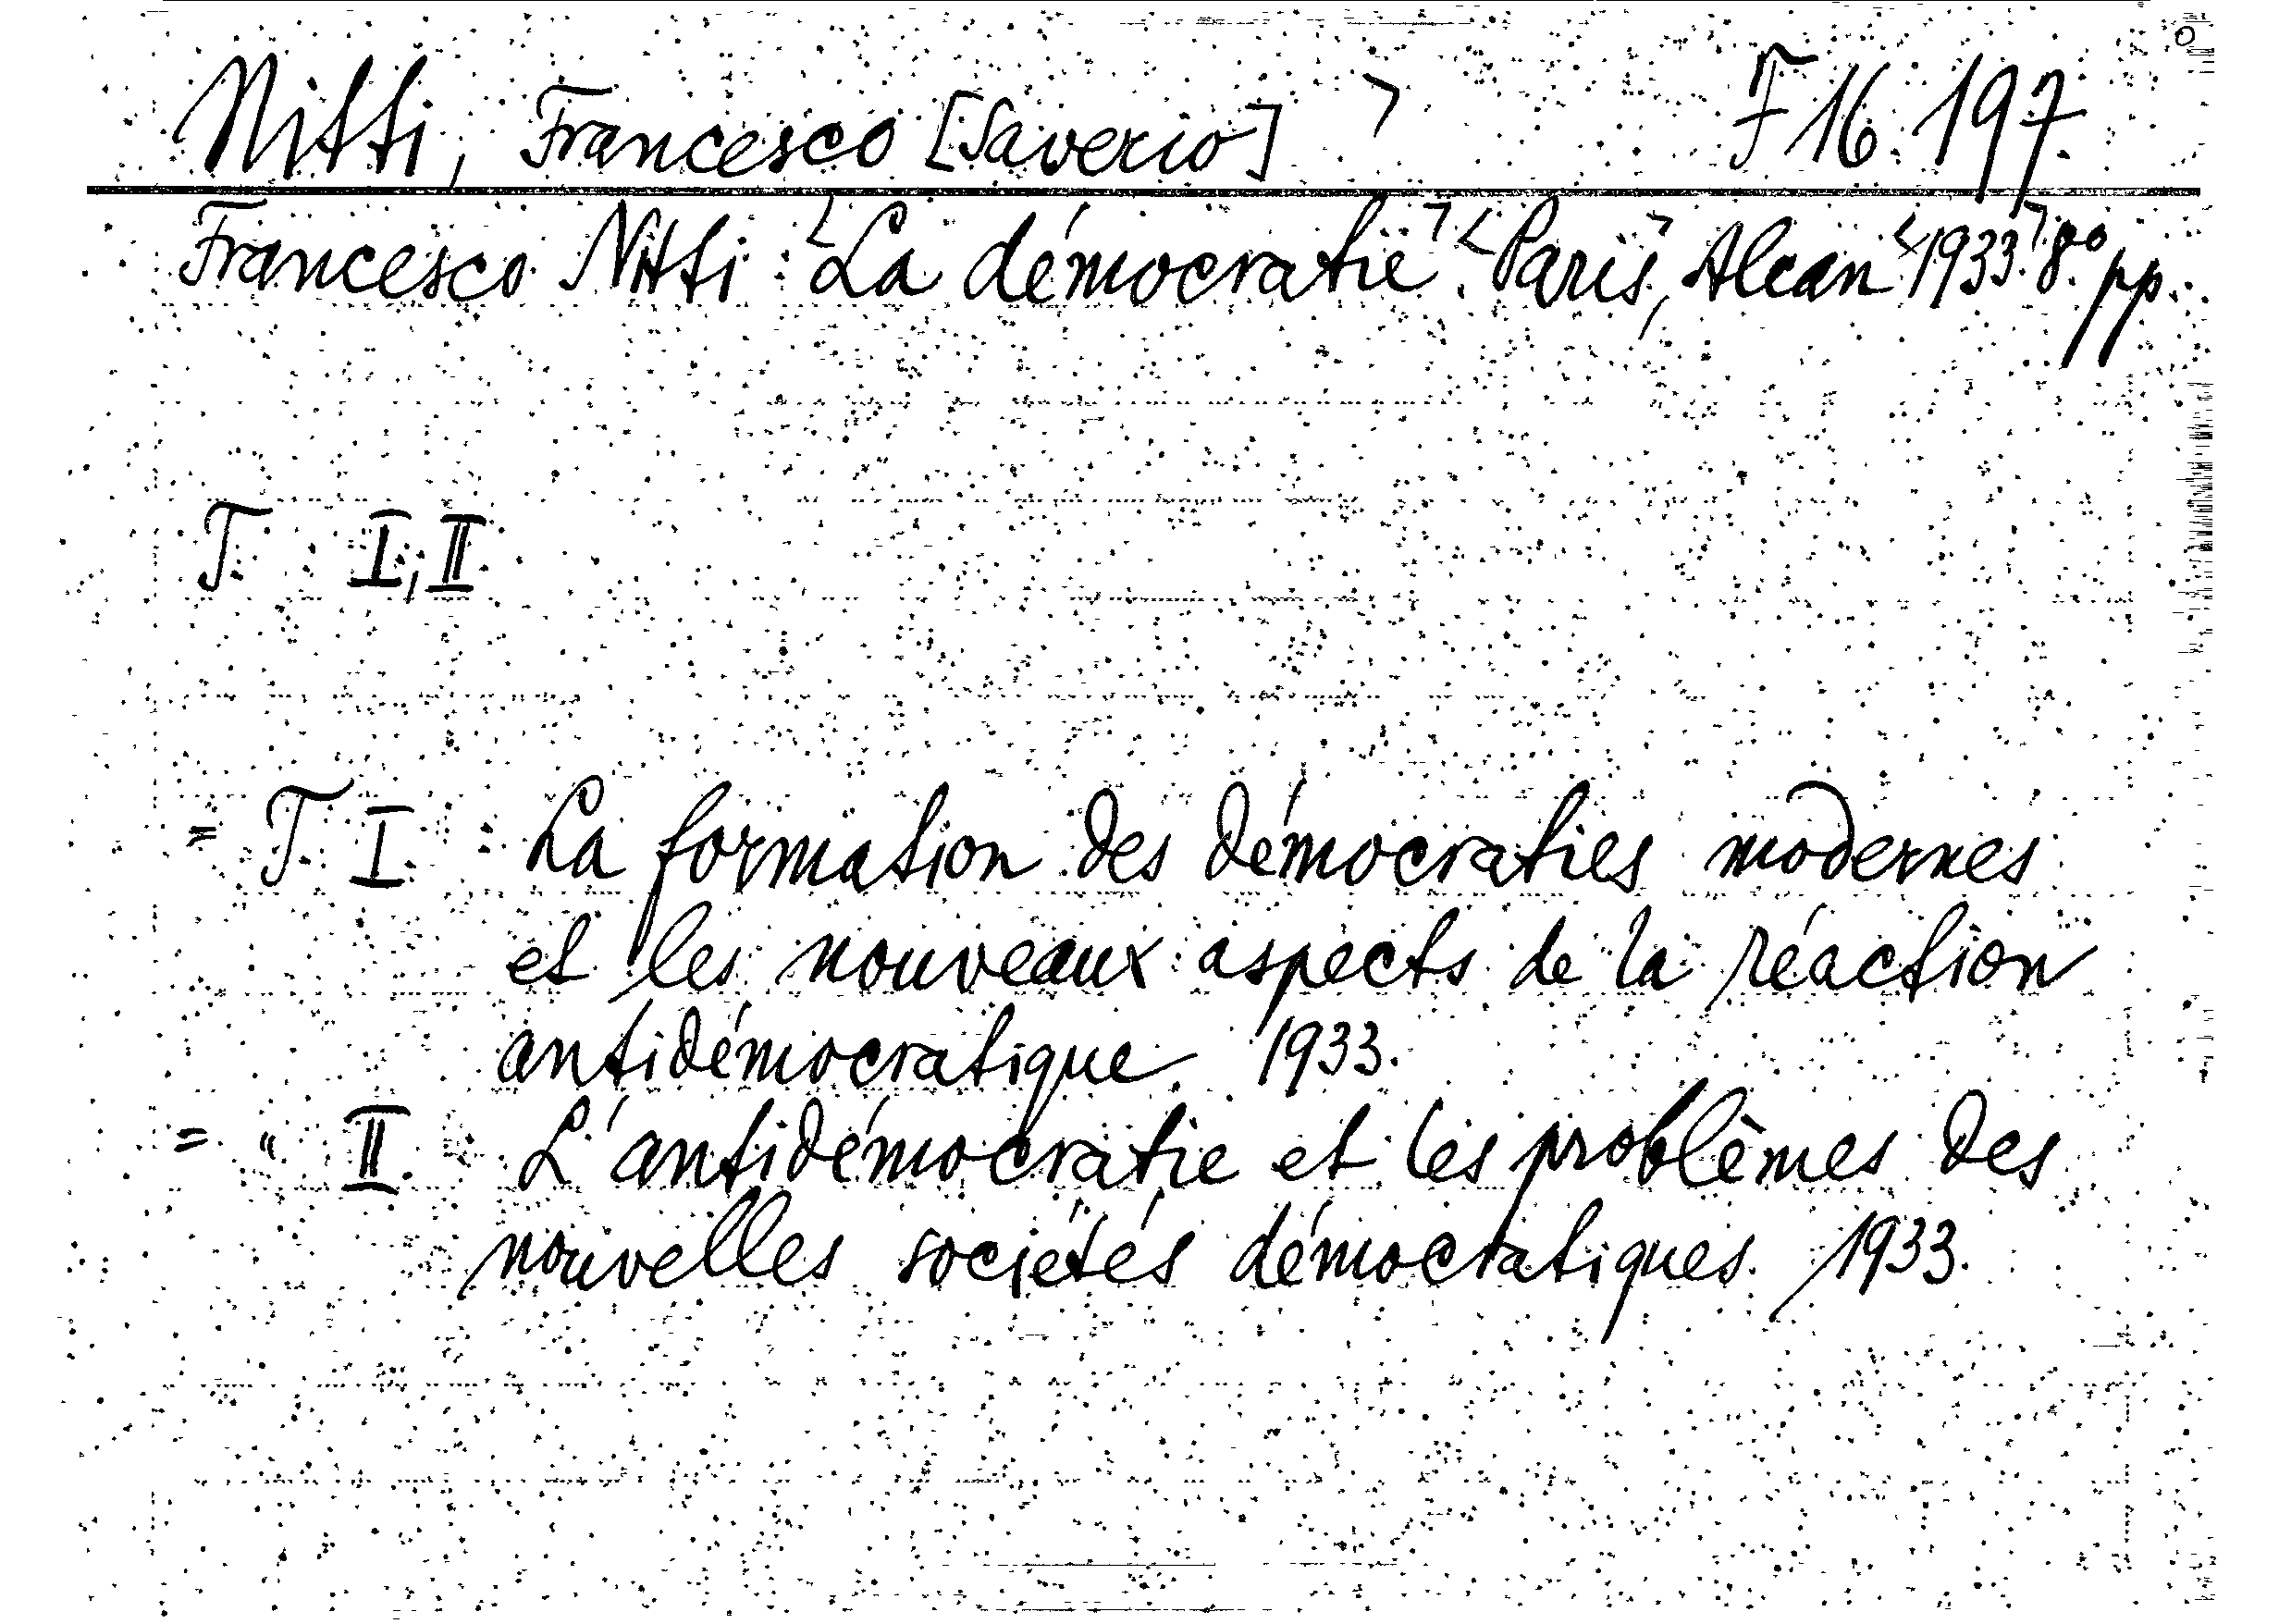 Nitti, Francesco [Saverio] > F 16.197.
Francesco Nitti <La démocratie>. <Paris>, Alcan <1933.> 8° pp.
T. I, II.
= T. I. La formation des démocraties modernes
et les nouveaux aspects de la réaction
antidémocratique. 1933.
= " II. L'antidémocratie et les problèmes des
nouvelles sociétés démocratiques. 1933.